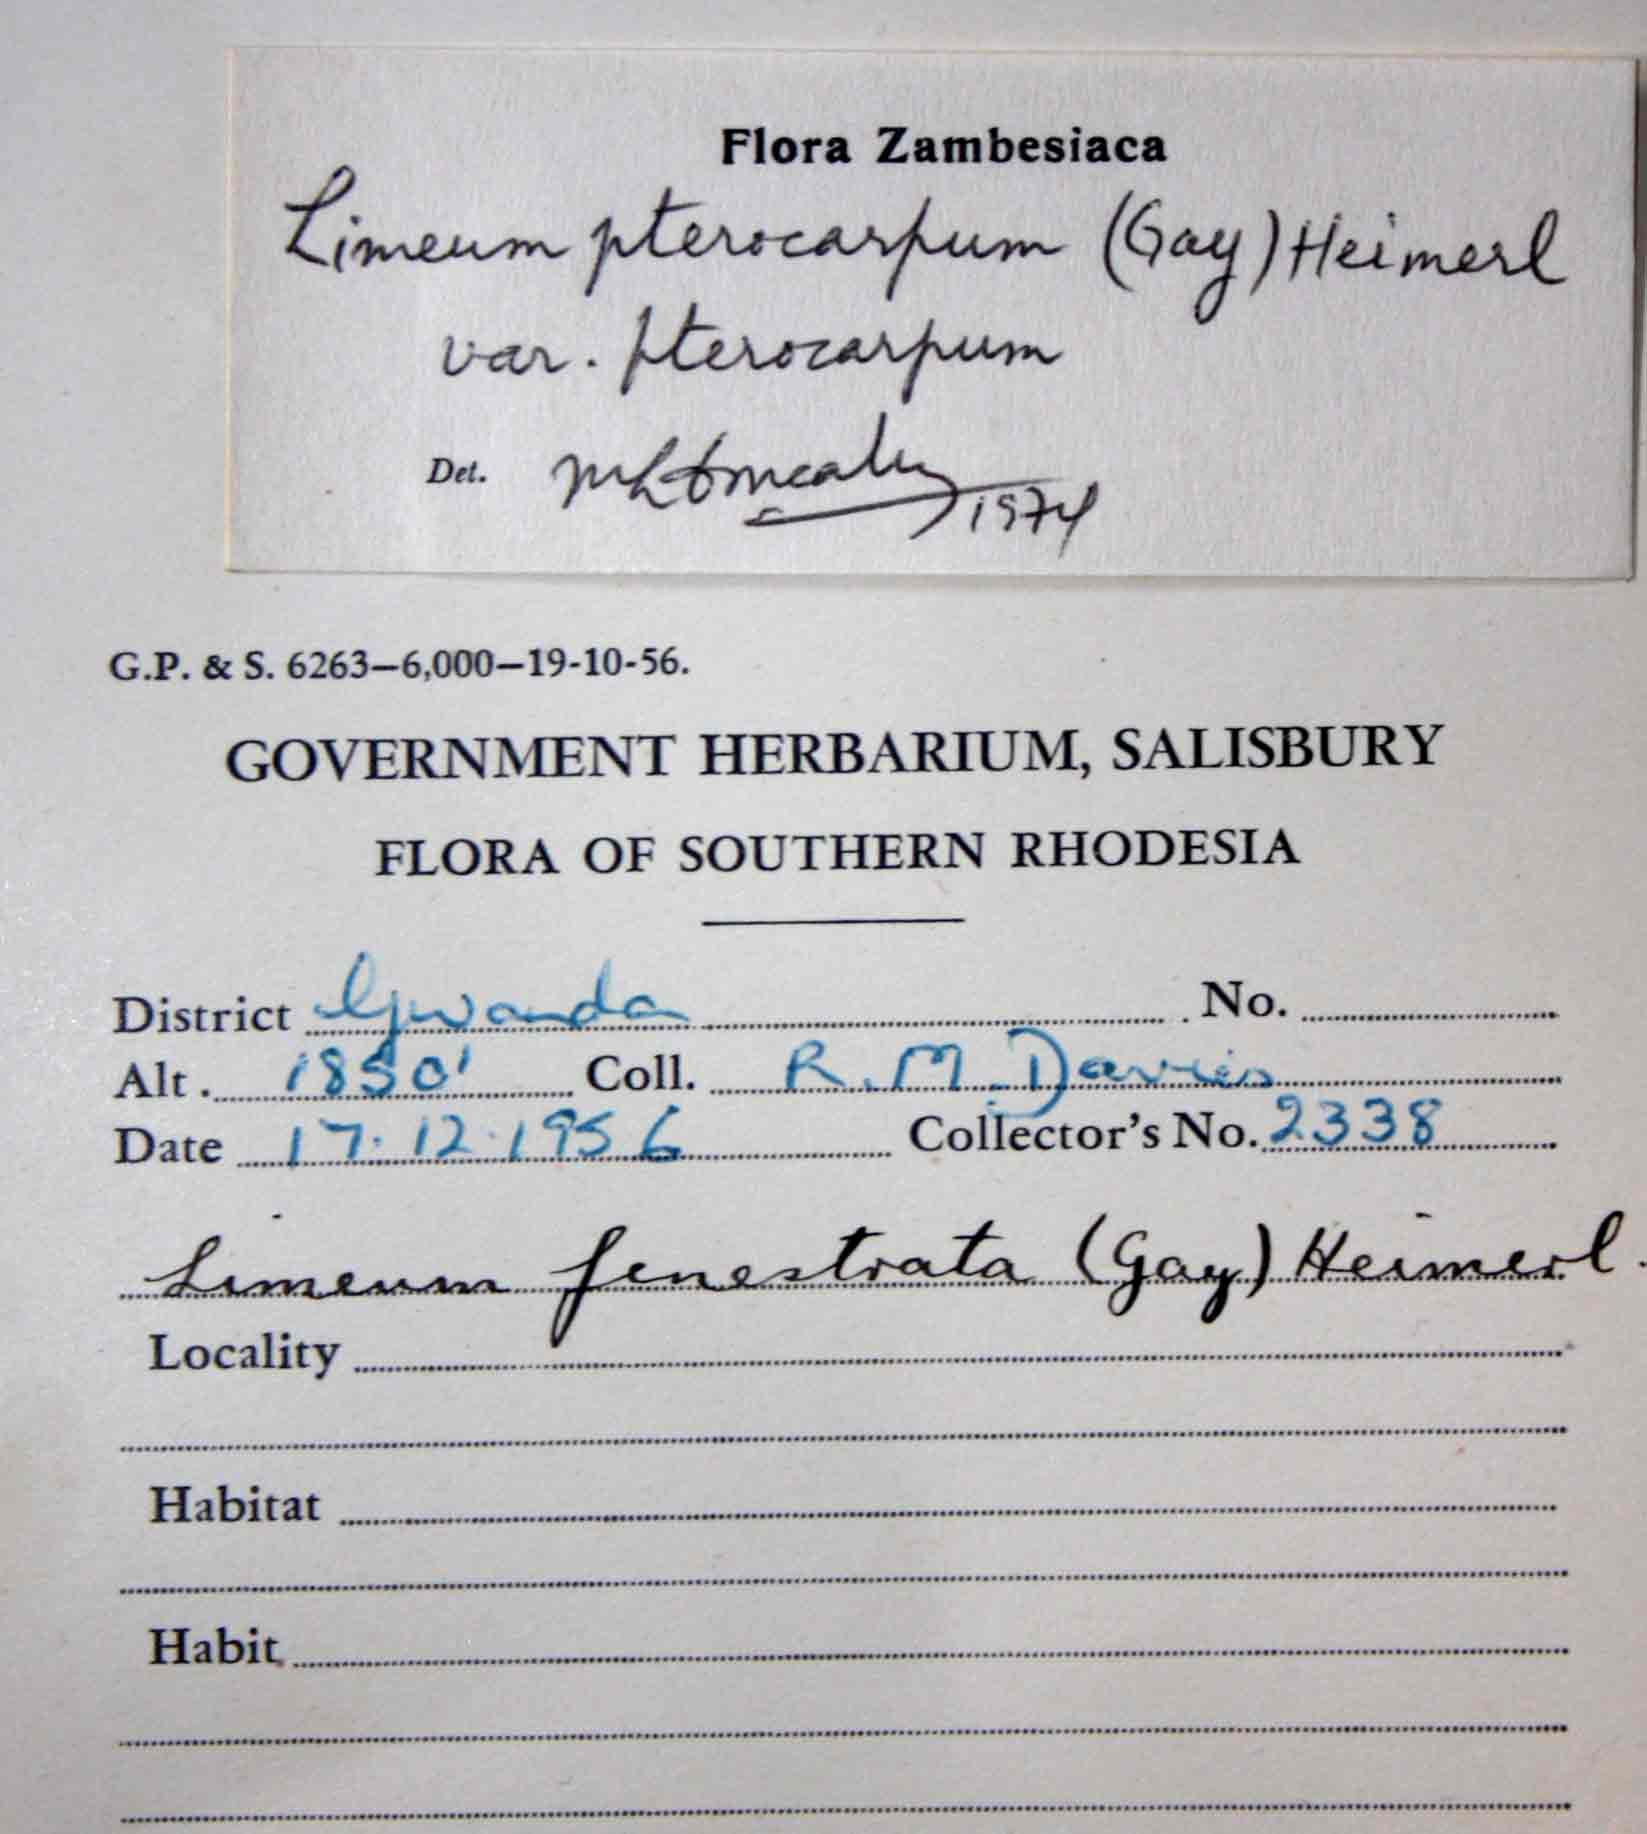 Flora Zambesiaca
Limeum pterocarpum (Gay) Heimerl
var. pterocarpum
Det. 1974
G.P. & S. 6263—6,000—19-10-56.
GOVERNMENT HERBARIUM, SALISBURY
FLORA OF SOUTHERN RHODESIA
District Gwanda No.
Alt. 1850' Coll. R. M. Davies
Date 17.12.1956 Collector's No. 2338
Limeum fenestrata (Gay) Heimerl.
Locality
Habitat
Habit